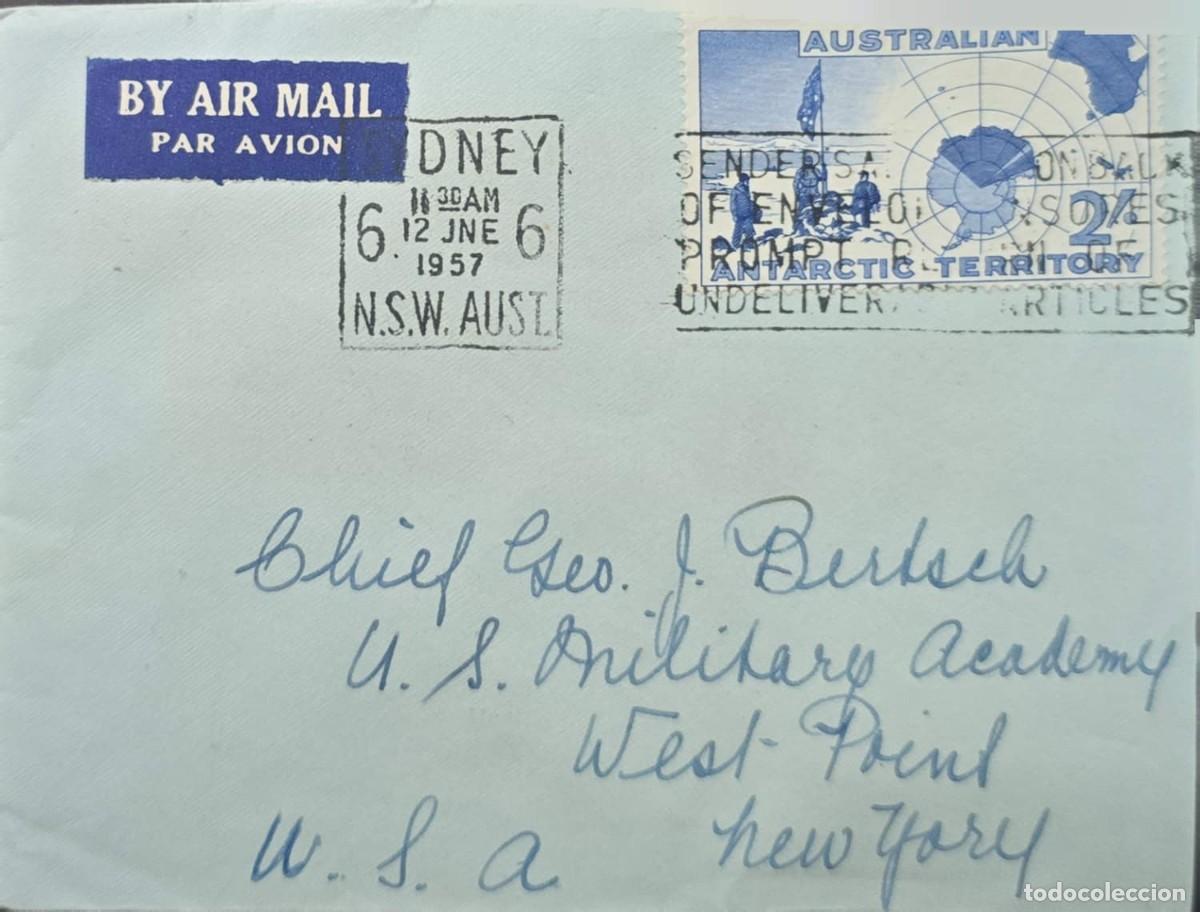 BY AIR MAIL
PAR AVION
SYDNEY
11 30 AM
6 12 JNE 6
1957
N.S.W. AUST.
AUSTRALIAN
2/-
ANTARCTIC TERRITORY
SENDER'S ON BACK
OF ENVELOPE ENSURES
PROMPT RETURN OF
UNDELIVERABLE ARTICLES
Chief Geo. J. Bertsch
U. S. Military Academy
West Point
New York
U. S. A
todocoleccion